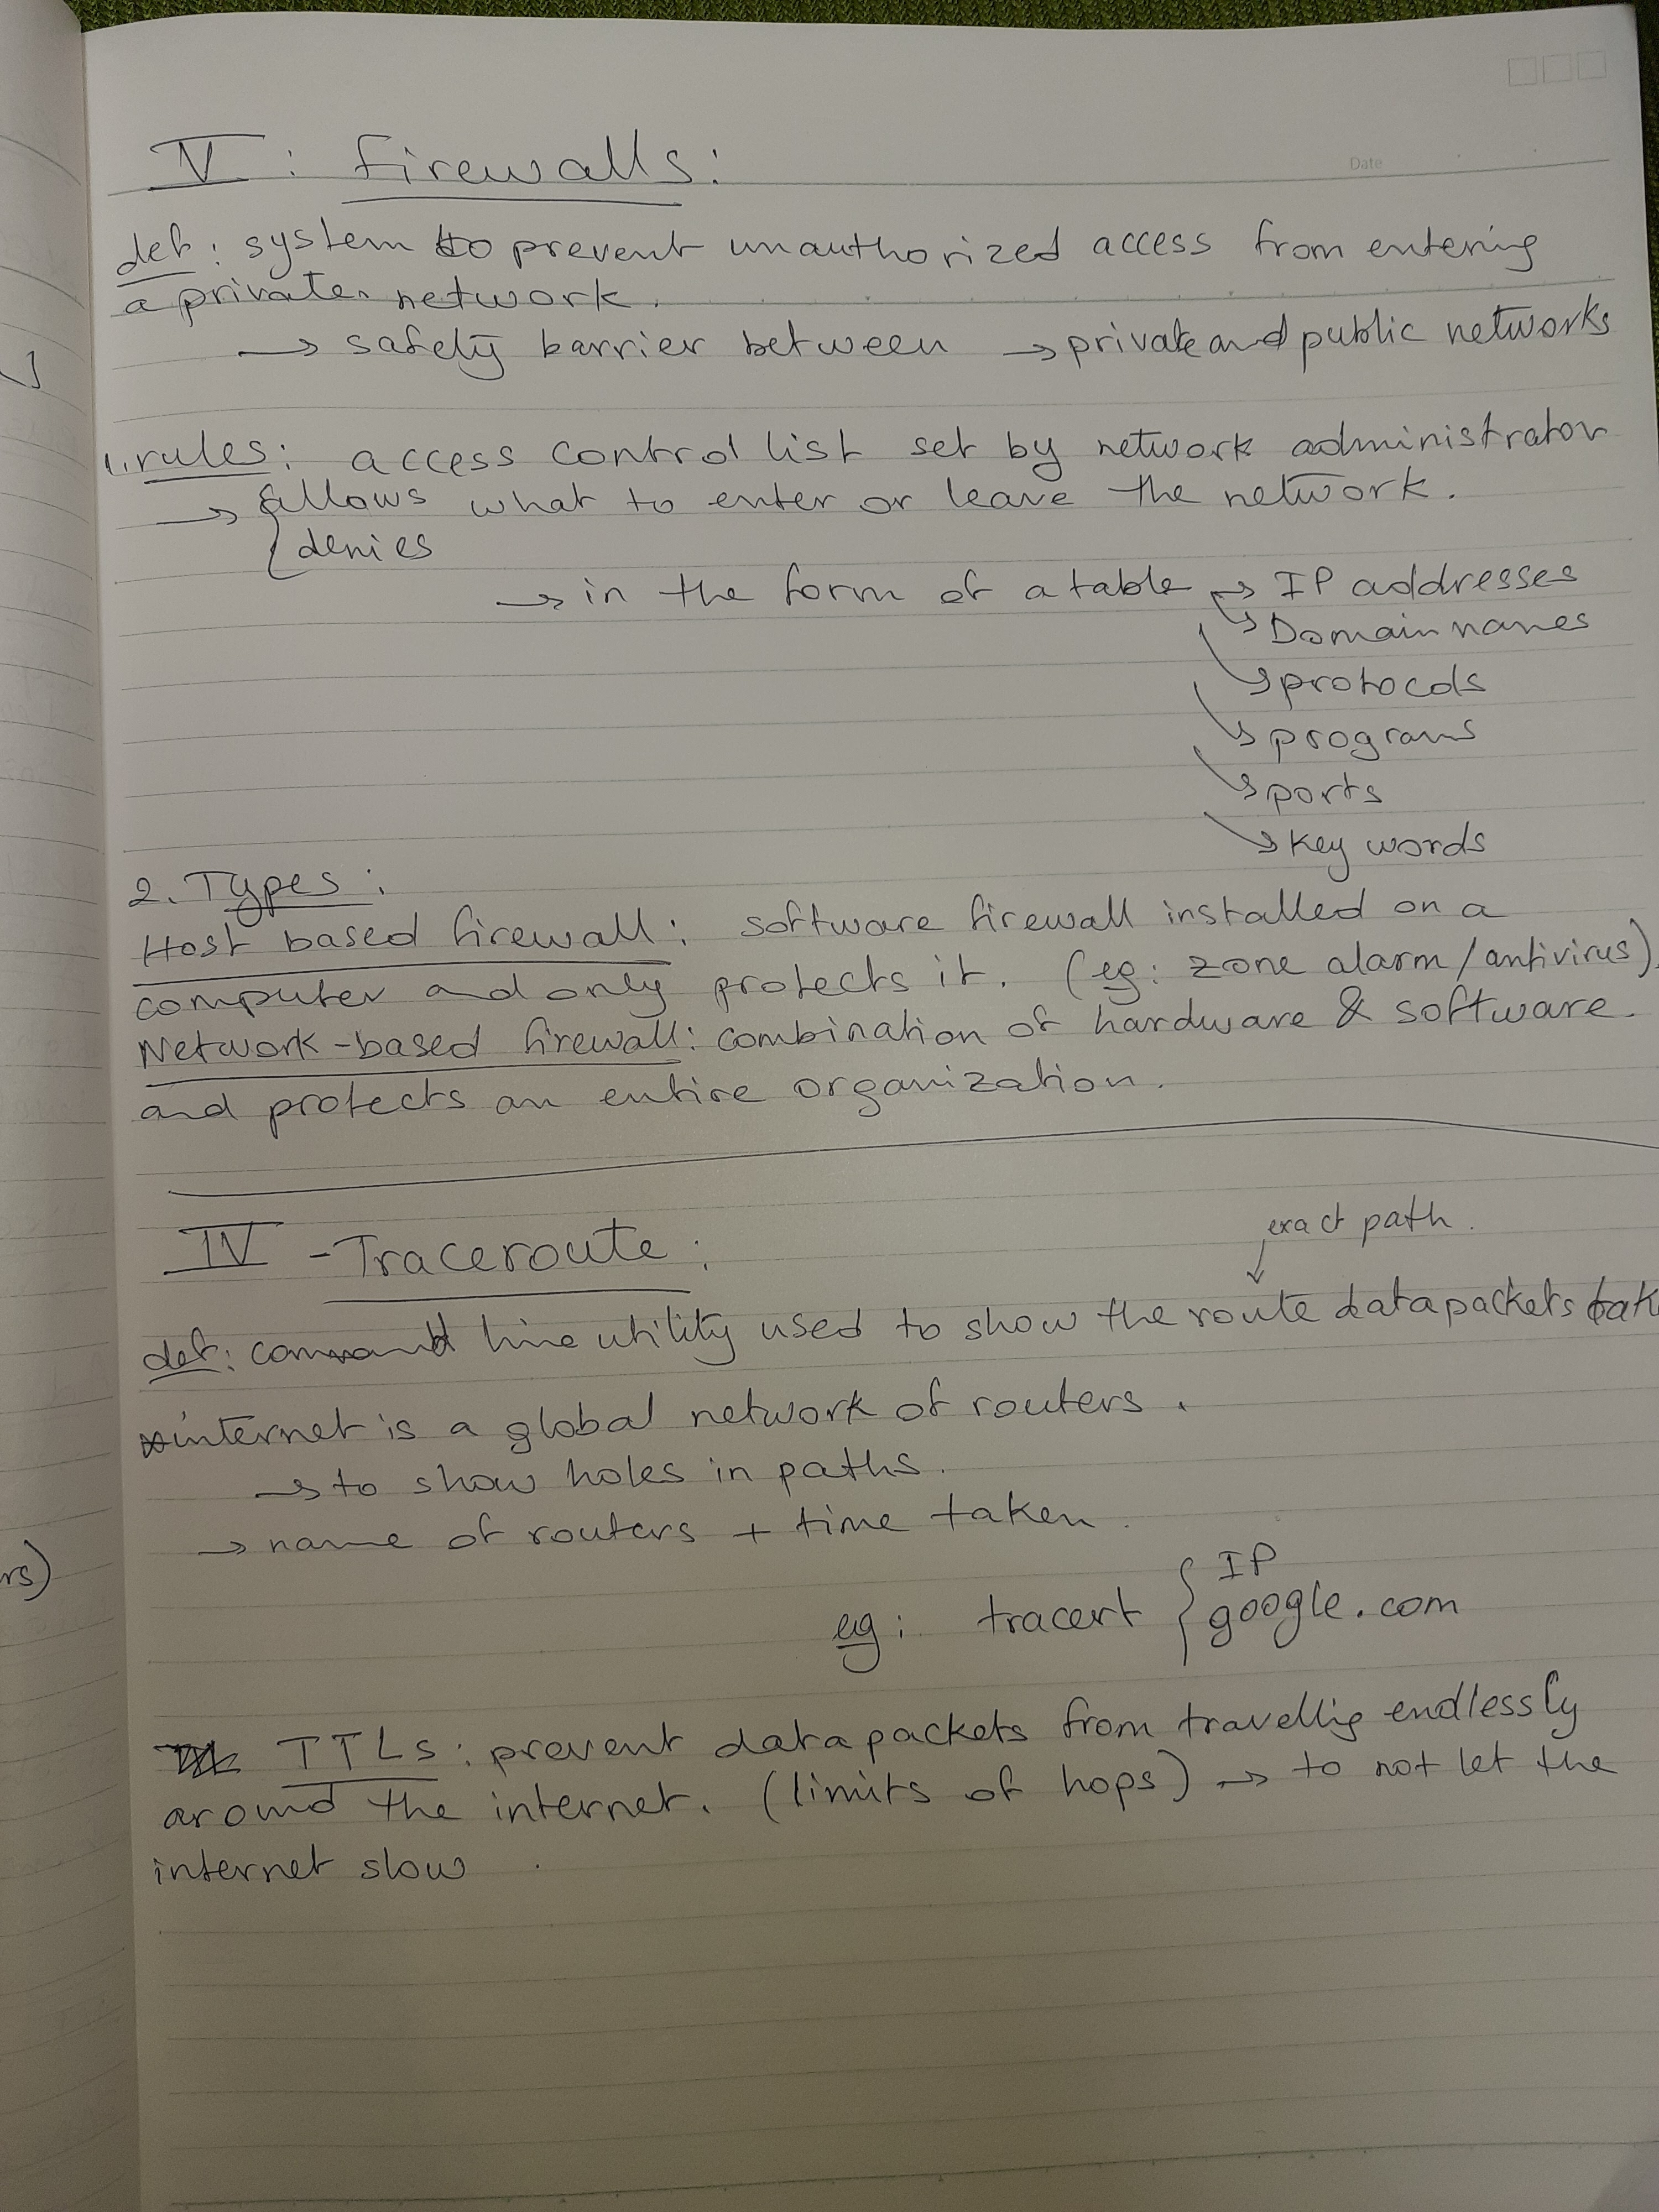 Date
V : firewalls:
def: system to prevent unauthorized access from entering
a private network.
→ safety barrier between → private and public networks
1. rules: access control list set by network administrator
→ { allows what to enter or leave the network.
denies
→ in the form of a table → IP addresses
→ Domain names
→ protocols
→ programs
→ ports
→ key words
2. Types:
Host based firewall: software firewall installed on a
computer and only protects it. (eg: zone alarm/antivirus).
Network-based firewall: combination of hardware & software.
and protects an entire organization.
IV - Traceroute:
exact path.
def: command line utility used to show the route data packets tak
internet is a global network of routers.
→ to show holes in paths.
→ name of routers + time taken.
rs)
IP
eg: tracert { google.com
TTLs: prevent data packets from travellig endlessly
around the internet. (limits of hops) → to not let the
internet slow.